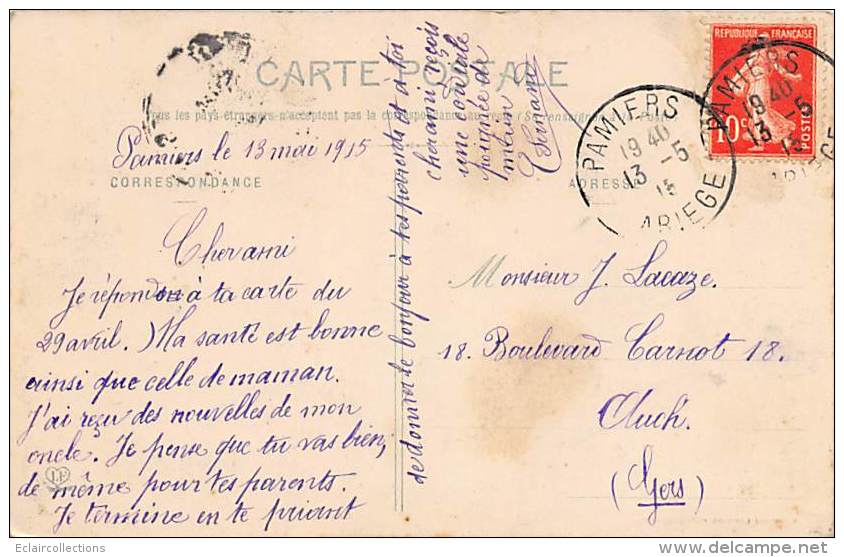 CARTE POSTALE
Tous les pays étrangers n'acceptent pas la correspondance au recto (Se renseigner à la Poste)
CORRESPONDANCE
ADRESSE
REPUBLIQUE FRANÇAISE
10c
POSTES
PAMIERS
19 40
13 -5
15
ARIEGE
PAMIERS
19 40
13 -5
15
ARIEGE
Pamiers le 13 mai 1915
Cher ami
Je répond à ta carte du
29 avril. Ma santé est bonne
ainsi que celle de maman.
J'ai reçu des nouvelles de mon
oncle. Je pense que tu vas bien,
de même pour tes parents.
Je termine en te priant
de donner le bonjour à tes parents et à toi
cher ami reçois
une cordiale
poignée de
main
Monsieur J. Lacaze.
18. Boulevard Carnot 18.
Auch.
(Gers)
Eclaircollections
www.delcampe.net